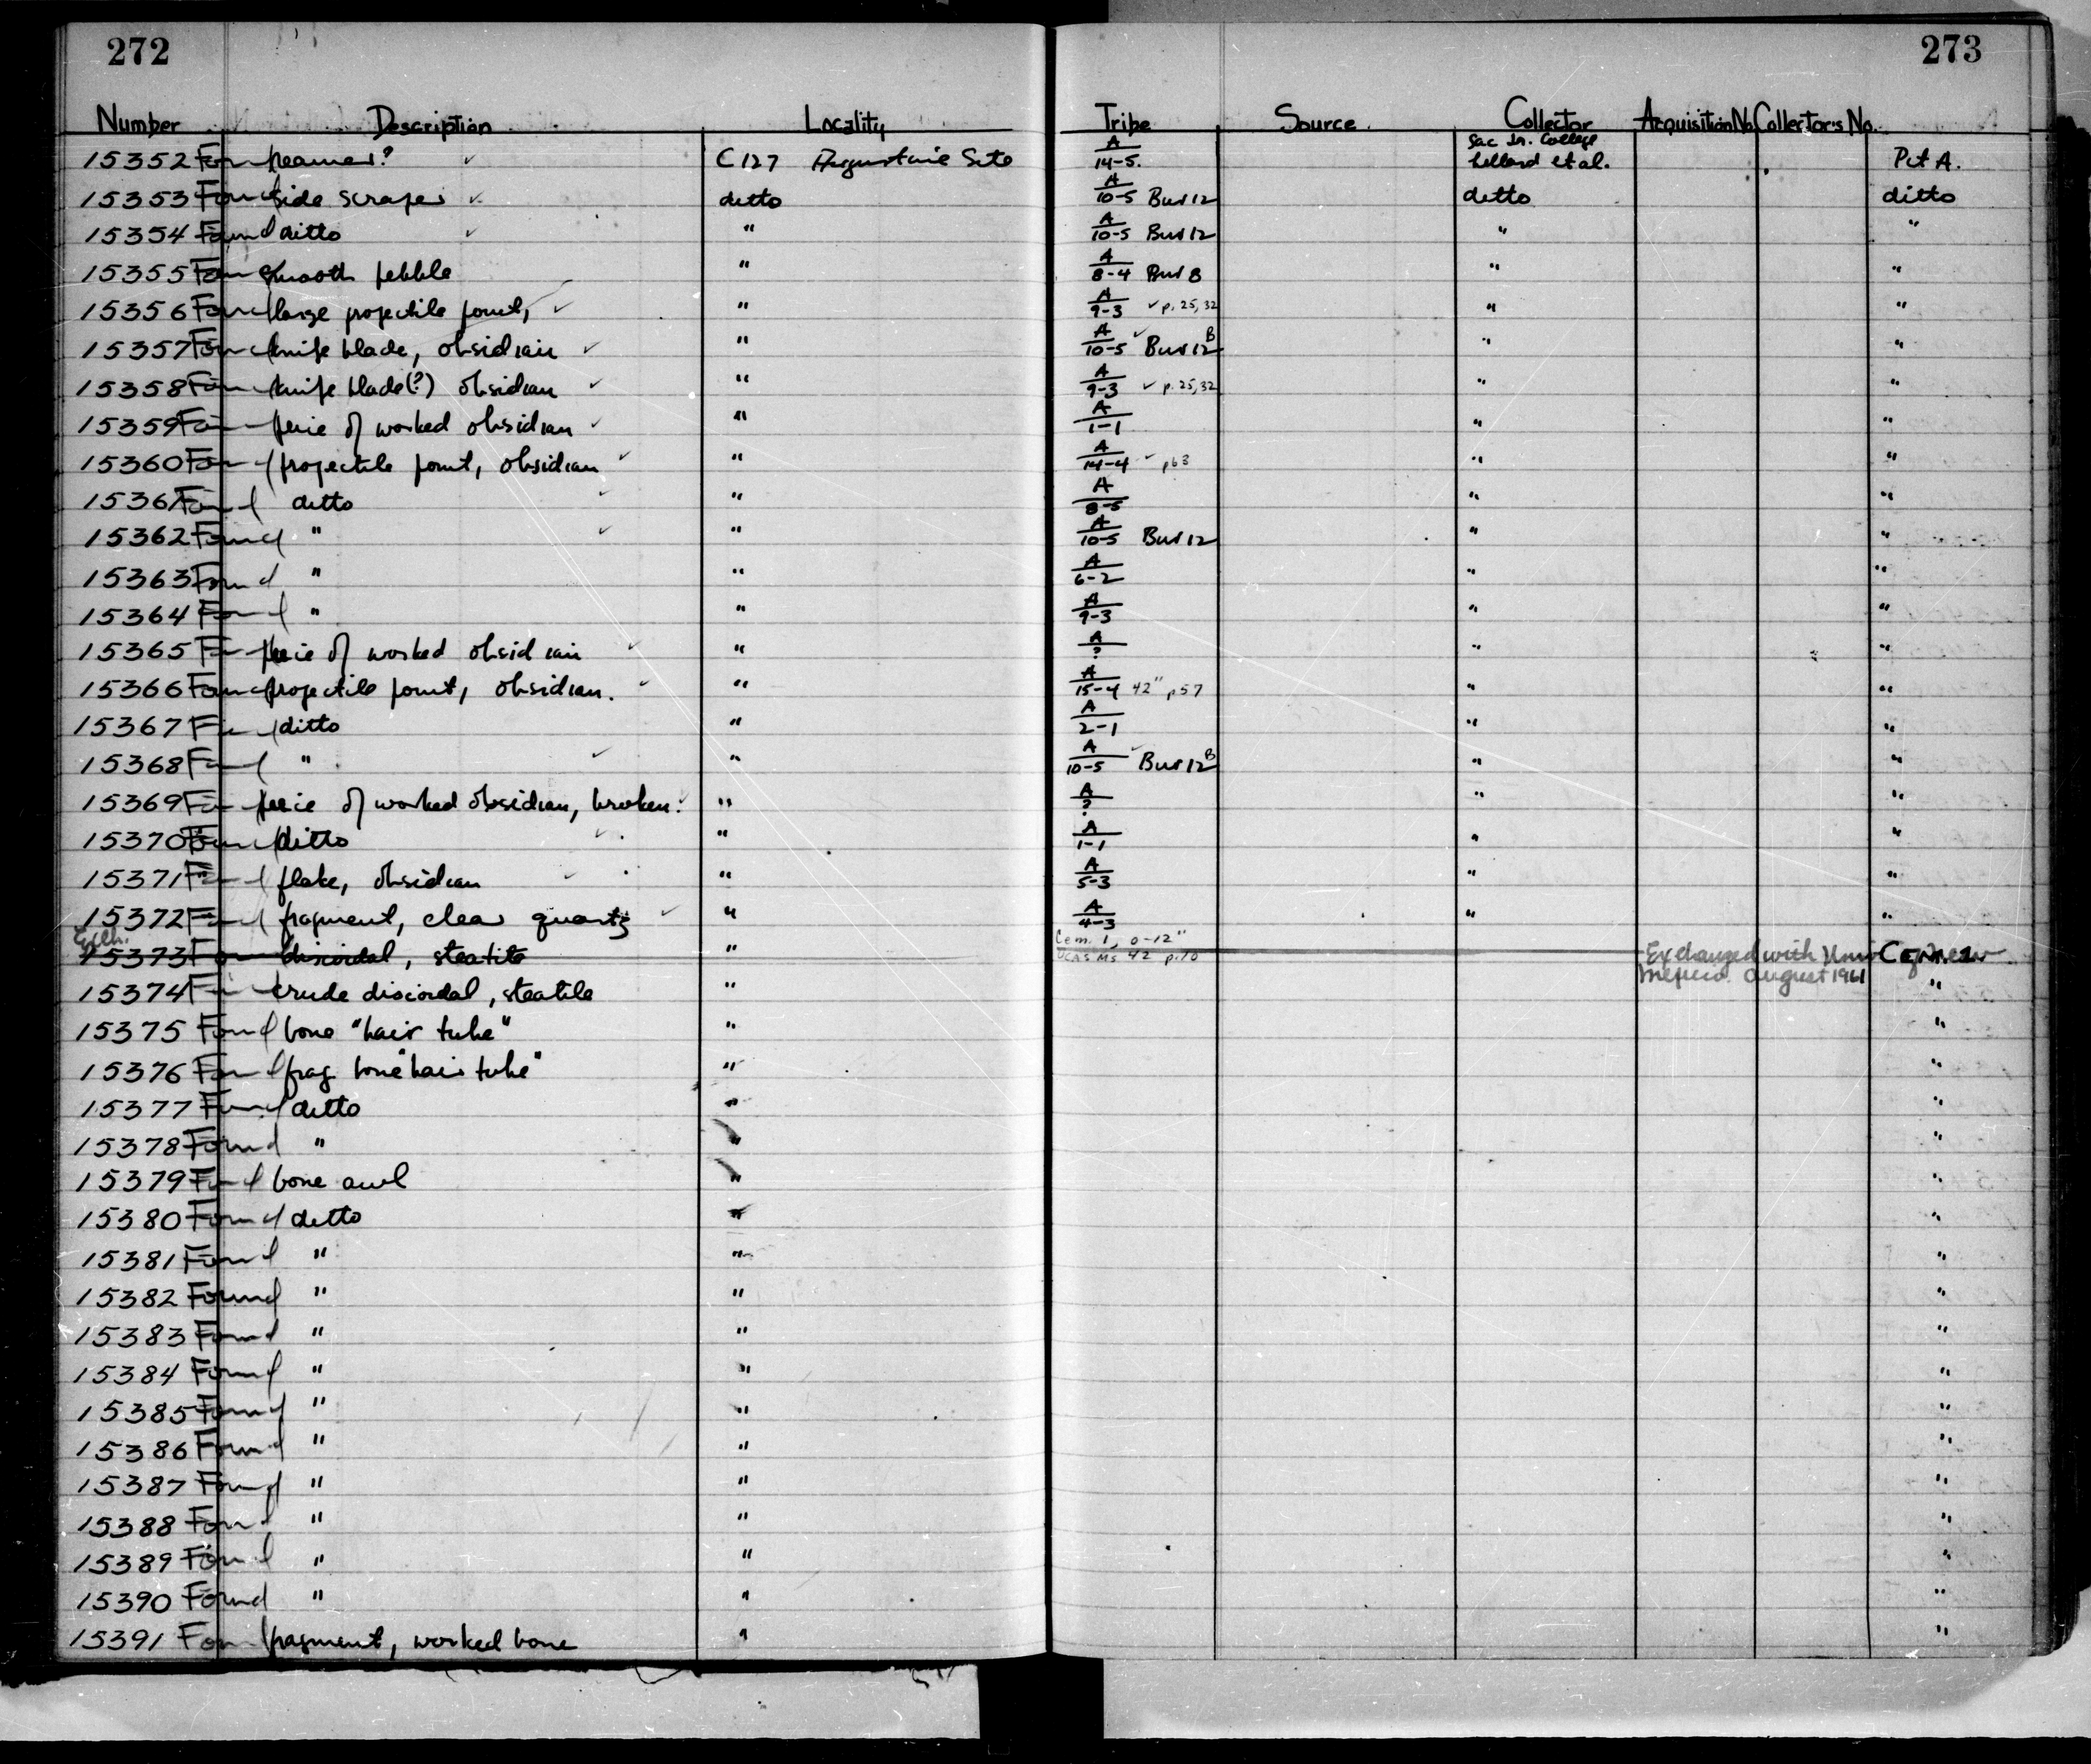 272
273
Number Description Locality Tribe Source Collector Acquisition No. Collector's No.
15352 Found beamer? ✓ C127 Augustine Site A/14-5. Sac Jr. College Lillard et al. Pit A.
15353 Found side scraper ✓ ditto A/10-5 Bur 12 ditto ditto
15354 Found ditto ✓ " A/10-5 Bur 12 " "
15355 Found smooth pebble " A/8-4 Bur 8 " "
15356 Found large projectile point, ✓ " A/9-3 ✓ p. 25, 32 " "
15357 Found knife blade, obsidian ✓ " A/10-5 ✓ Bur 12B " "
15358 Found knife blade(?) obsidian ✓ " A/9-3 ✓ p. 25, 32 " "
15359 Found peice of worked obsidian ✓ " A/1-1 " "
15360 Found projectile point, obsidian ✓ " A/14-4 ✓ p63 " "
15361 Found ditto ✓ " A/8-5 " "
15362 Found " ✓ " A/10-5 Bur 12 " "
15363 Found " " A/6-2 " "
15364 Found " " A/9-3 " "
15365 Found peice of worked obsidian ✓ " A/? " "
15366 Found projectile point, obsidian. ✓ " A/15-4 42" p57 " "
15367 Found ditto " A/2-1 " "
15368 Found " ✓ " A/10-5 ✓ Bur 12B " "
15369 Found peice of worked obsidian, broken. ✓ " A/? " "
15370 Found ditto ✓ " A/1-1 " "
15371 Found flake, obsidian ✓ " A/5-3 " "
15372 Found fragment, clear quartz ✓ " A/4-3 " "
Exch.
15373 Found discoidal, steatite " Cem. 1, 0-12" Exchanged with Univ of New CEM. 1.
UCAS Ms 42 p.70 Mexico August 1961
15374 Found crude discoidal, steatite " "
15375 Found bone "hair tube" " "
15376 Found frag bone "hair tube" " "
15377 Found ditto " "
15378 Found " " "
15379 Found bone awl " "
15380 Found ditto " "
15381 Found " " "
15382 Found " " "
15383 Found " " "
15384 Found " " "
15385 Found " " "
15386 Found " " "
15387 Found " " "
15388 Found " " "
15389 Found " " "
15390 Found " " "
15391 Found fragment, worked bone " "